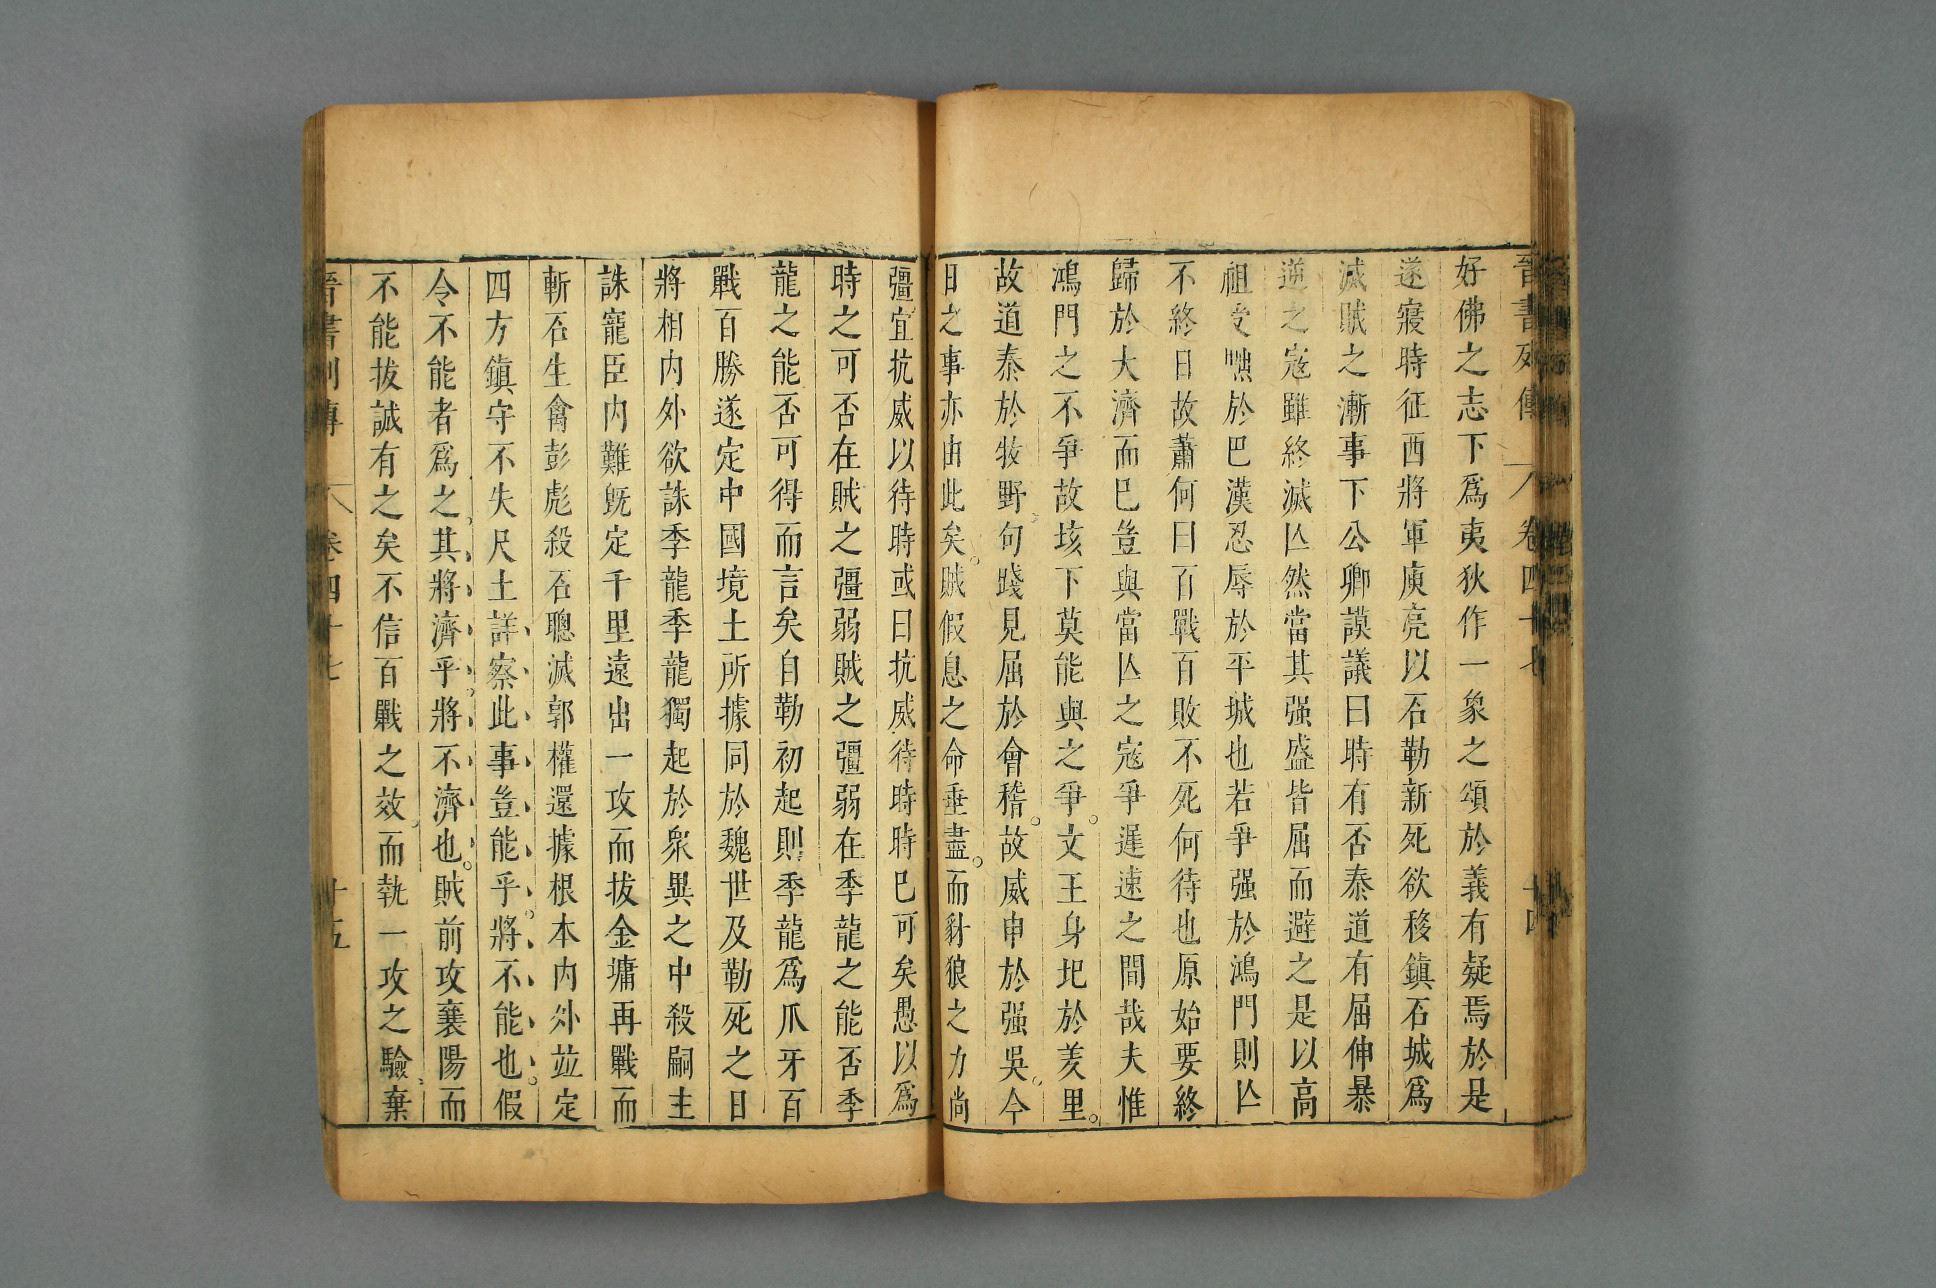 晉書列傳 卷四十七 十四
好佛之志下爲夷狄作一象之頌於義有疑焉於是
遂寢時征西將軍庾亮以石勒新死欲移鎮石城爲
滅賊之漸事下公卿謨議曰時有否泰道有屈伸暴
逆之寇雖終滅亾然當其强盛皆屈而避之是以高
祖受黜於巴漢忍辱於平城也若爭强於鴻門則亾
不終日故蕭何曰百戰百敗不死何待也原始要終
歸於大濟而已豈與當亾之寇爭遲速之間哉夫惟
鴻門之不爭故垓下莫能與之爭文王身圯於羑里
故道泰於牧野句踐見屈於會稽故威申於强吳今
日之事亦由此矣賊假息之命垂盡而豺狼之力尚
彊宜抗威以待時或曰抗威待時時已可矣愚以爲
時之可否在賊之彊弱賊之彊弱在季龍之能否季
龍之能否可得而言矣自勒初起則季龍爲爪牙百
戰百勝遂定中國境土所據同於魏世及勒死之日
將相內外欲誅季龍季龍獨起於衆異之中殺嗣主
誅寵臣內難旣定千里遠出一攻而拔金墉再戰而
斬石生禽彭彪殺石聰滅郭權還據根本內外並定
四方鎮守不失尺土詳察此事豈能乎將不能也假
令不能者爲之其將濟乎將不濟也賊前攻襄陽而
不能拔誠有之矣不信百戰之效而執一攻之驗棄
晉書列傳 卷四十七 十五